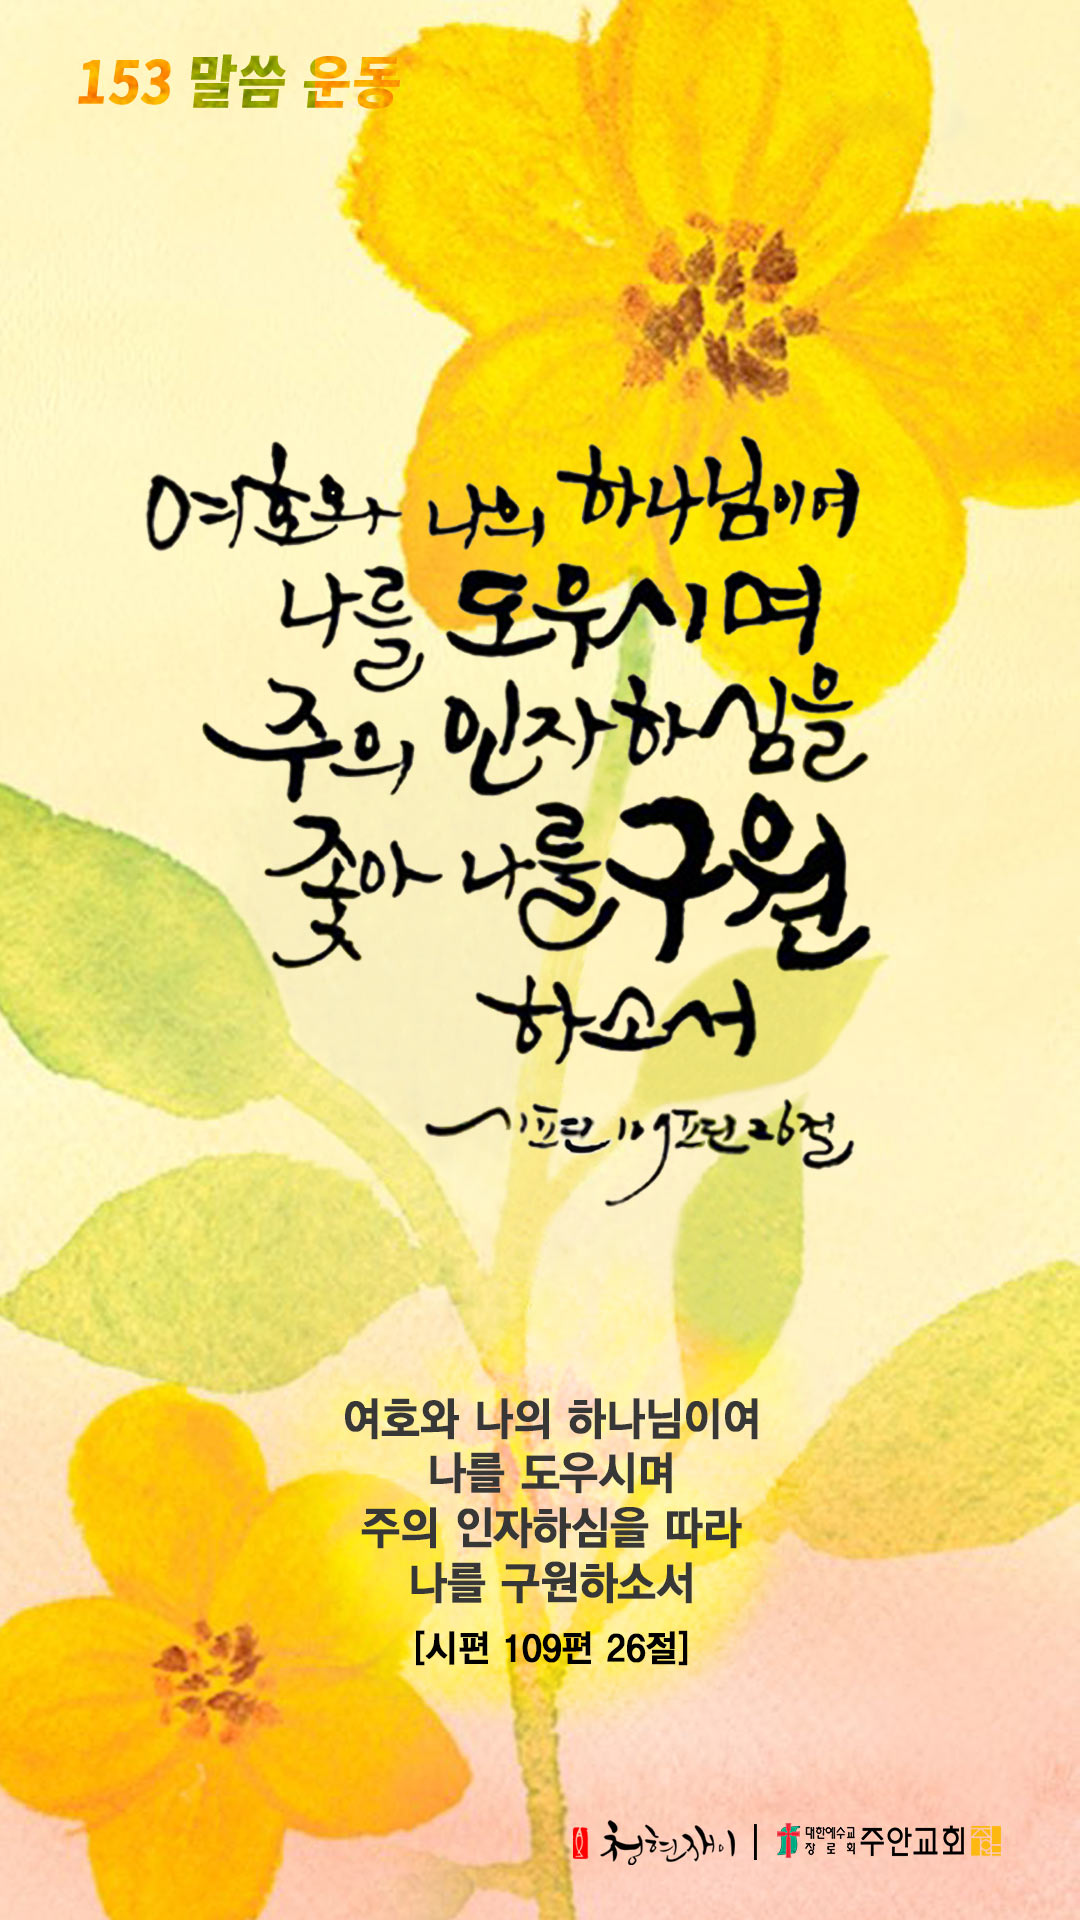 153 말씀 운동
여호와 나의 하나님이여
나를 도우시며
주의 인자하심을
좇아 나를 구원
하소서
시편 109편 26절
여호와 나의 하나님이여
나를 도우시며
주의 인자하심을 따라
나를 구원하소서
[시편 109편 26절]
청현재이 | 대한예수교장로회 주안교회